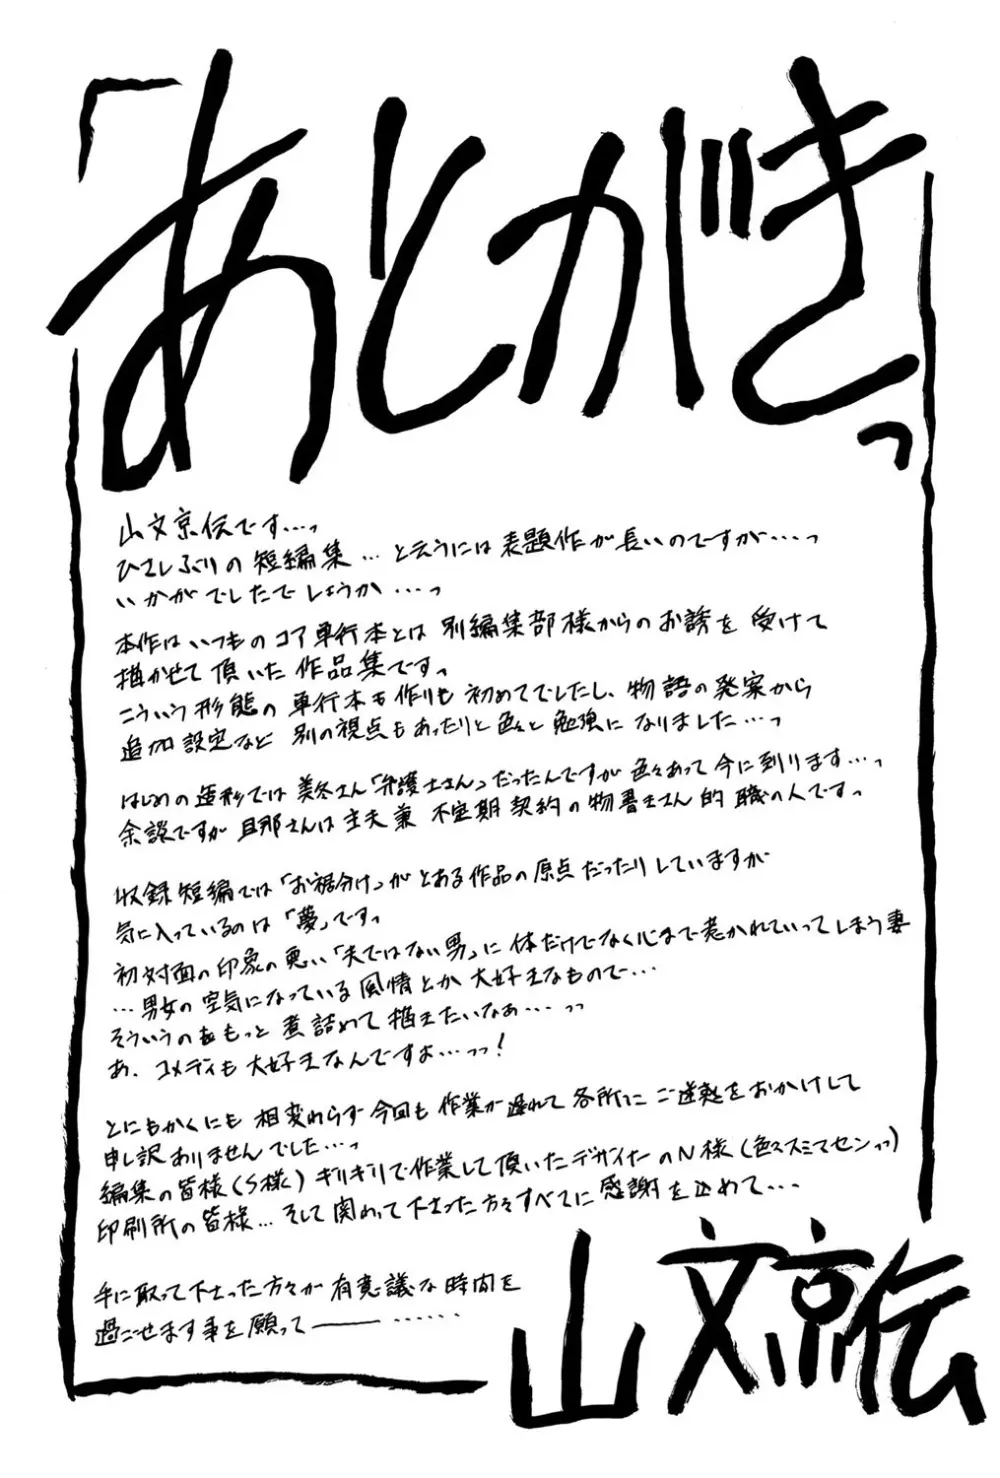 「あとがき」っ
山文京伝です…っ
ひさしぶりの短編集…と云うには表題作が長いのですが…っ
いかがでしたでしょうか…っ
本作はいつものコア単行本とは別編集部様からのお誘を受けて
描かせて頂いた作品集ですっ
こういう形態の単行本も作りも初めてでしたし、物語の発案から
追加設定など別の視点もあったりと色々と勉強になりました…っ
はじめの造形では美冬さん「弁護士さん」だったんですが色々あって今に到ります…っ
余談ですが旦那さんは主夫兼不定期契約の物書きさん的職の人ですっ
収録短編では「お裾分け」がとある作品の原点だったりしていますが
気に入っているのは「夢」ですっ
初対面の印象の悪い「夫ではない男」に体だけでなく心まで惹かれていってしまう妻
…男女の空気になっている風情とか大好きなもので…
そういうのをもっと煮詰めて描きたいなぁ…っっ
あ、コメディも大好きなんですよ…っっ！
とにもかくにも相変わらず今回も作業が遅れて各所にご迷惑をおかけして
申し訳ありませんでした…っ
編集の皆様(S様)ギリギリで作業して頂いたデザイナーのN様(色々スミマセンっっ)
印刷所の皆様…そして関わって下さった方々すべてに感謝を込めて…
手に取って下さった方々が有意義な時間を
過ごせます事を願って――……
山文京伝